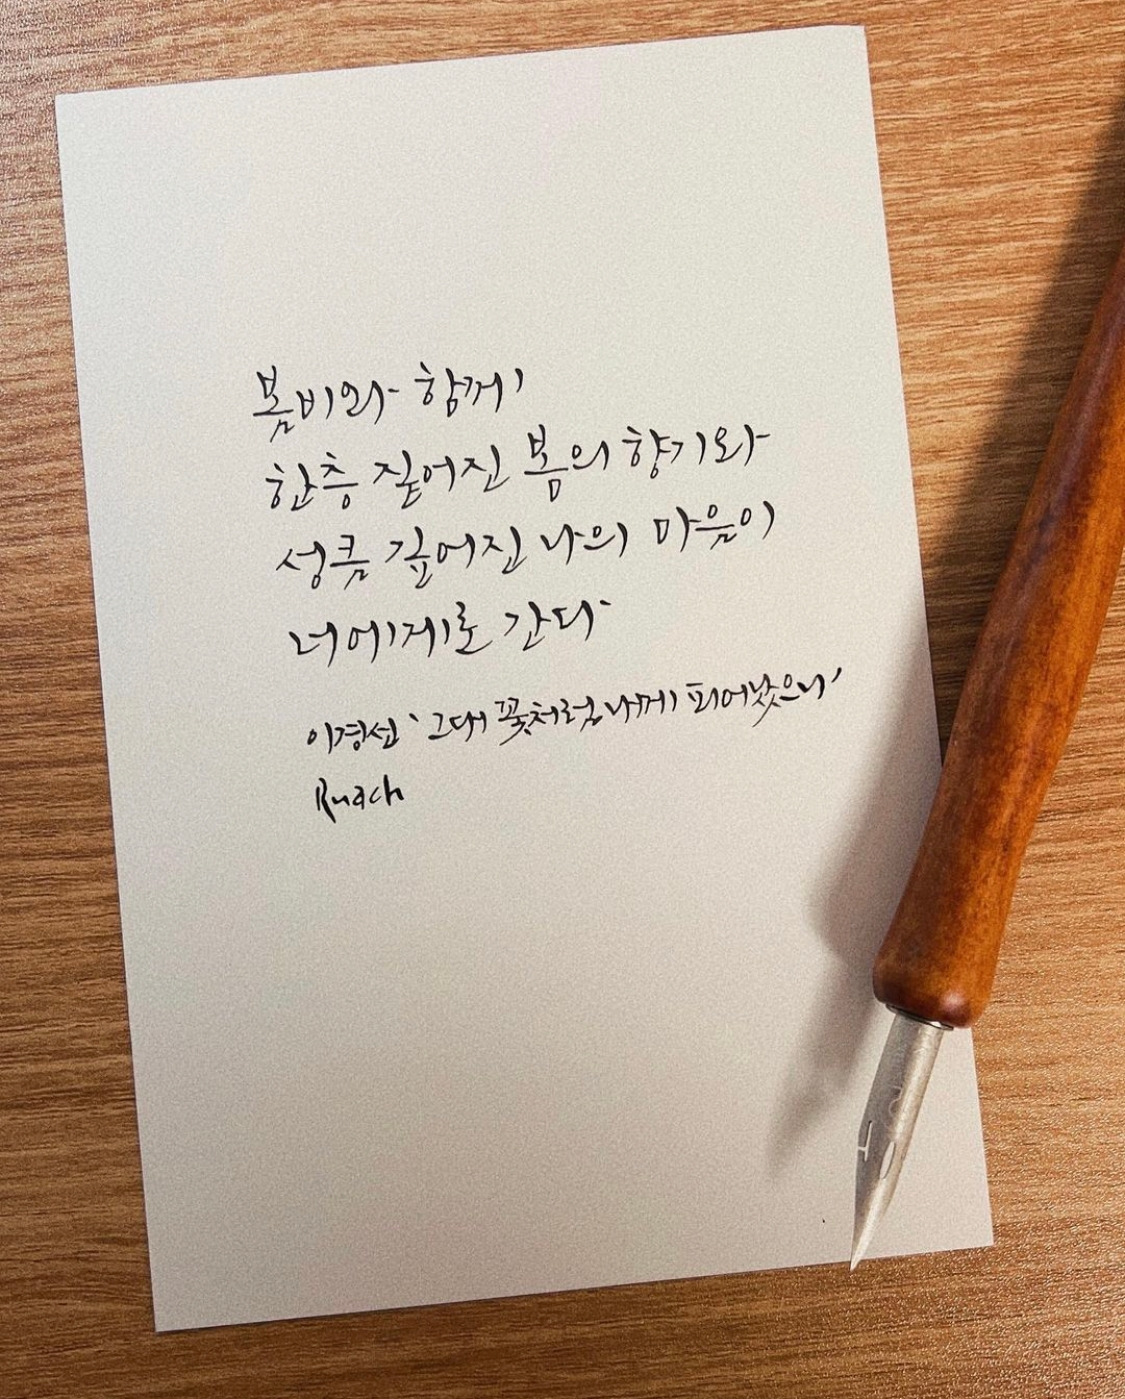 봄비와 함께
한층 짙어진 봄의 향기와
성큼 깊어진 나의 마음이
너에게로 간다
이경선 '그대 꽃처럼 내게 피어났으니'
Ruach